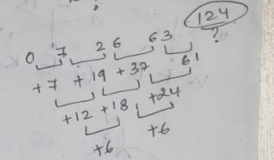 124
?
0 7 26 63
+7 +19 +37 61
+12 +18 +24
+6 +6